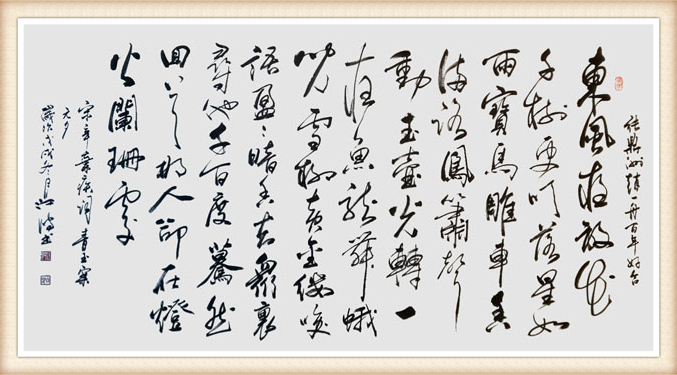 百年好合
東風夜放花
千樹更吹落星如
雨寶馬雕車香
滿路鳳簫聲
動玉壺光轉一
夜魚龍舞蛾
兒雪柳黃金縷咲
語盈盈暗香去眾裏
尋他千百度驀然
回首那人卻在燈
火闌珊處
宋辛棄疾詞青玉案
元夕
歲次戊戌冬月書